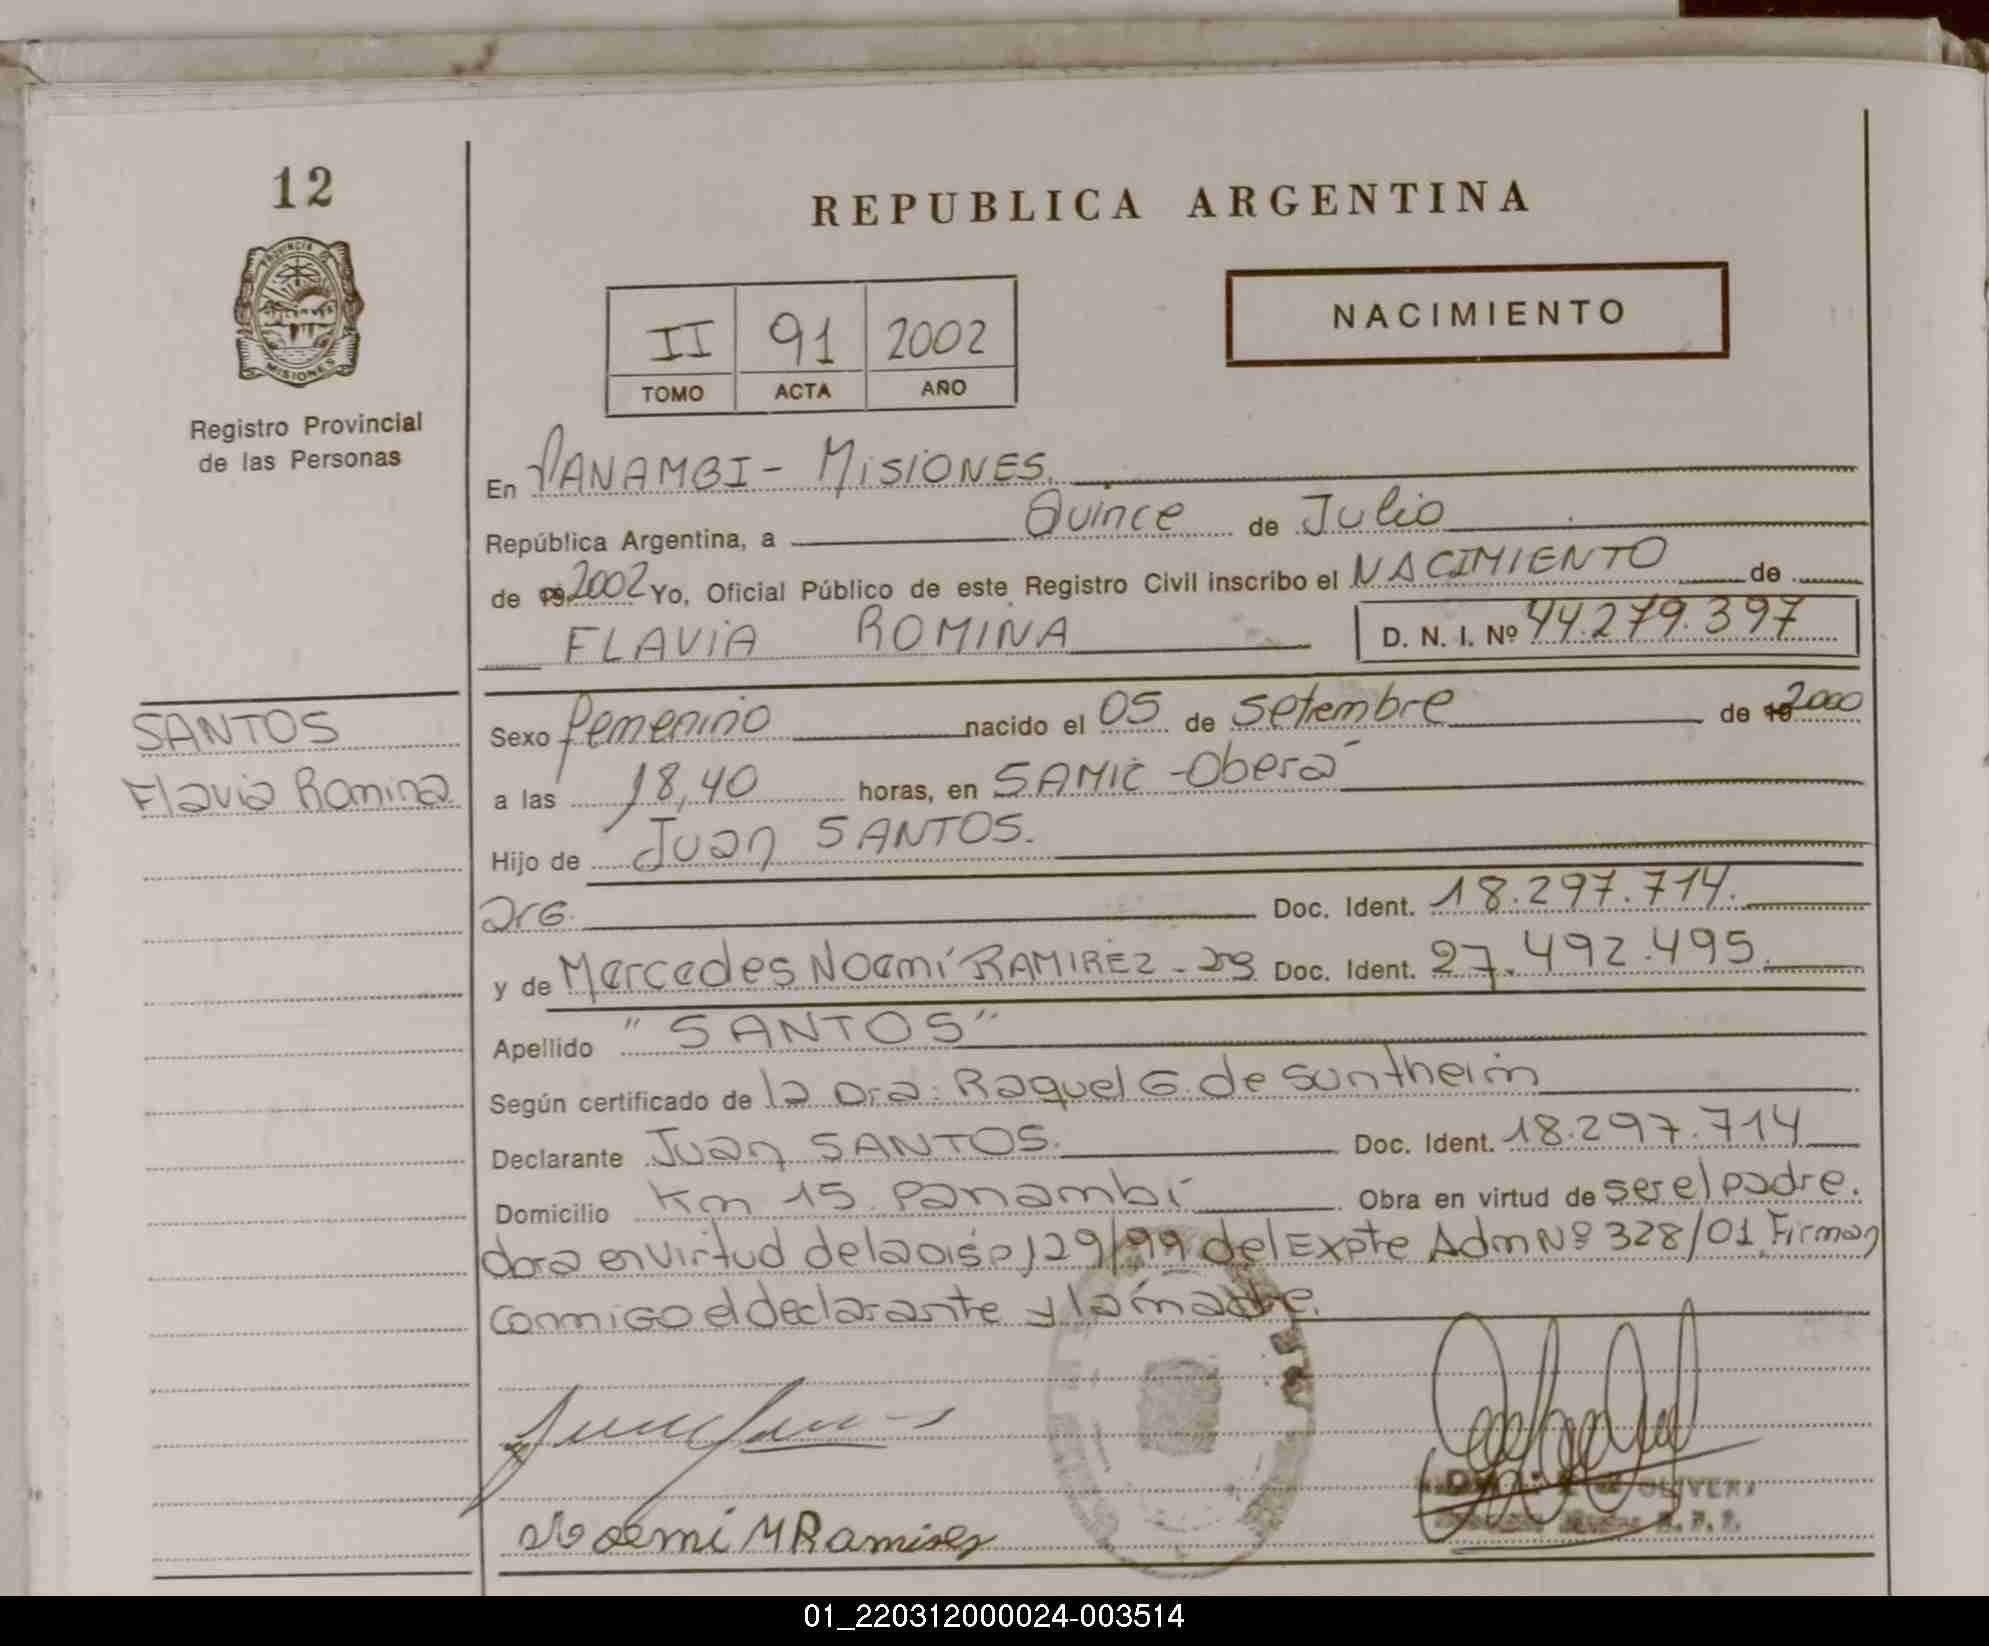 12
REPUBLICA ARGENTINA
PROVINCIA DE
MISIONES
NACIMIENTO
II 91 2002
TOMO ACTA AÑO
Registro Provincial
de las Personas
En PANAMBI - MISIONES.
República Argentina, a Quince de Julio
de 19 2002 Yo, Oficial Público de este Registro Civil inscribo el NACIMIENTO de
FLAVIA ROMINA D. N. I. Nº 44.279.397
SANTOS
Flavia Romina
Sexo femenino nacido el 05 de Setiembre de 19 2000
a las 18,40 horas, en SAMIC - Oberá
Hijo de Juan SANTOS.
arG. Doc. Ident. 18.297.714.
y de Mercedes Noemí RAMIREZ - Doc. Ident. 27.492.495.
Apellido "SANTOS"
Según certificado de la Dra. Raquel G. de Suntheim
Declarante Juan SANTOS. Doc. Ident. 18.297.714
Domicilio Km 15 Panambí Obra en virtud de ser el padre.
en virtud de la Disp 129/99 del Expte Adm Nº 328/01 Firman
conmigo el declarante y la madre.
Noemí M Ramirez
OLIVERA
01_220312000024-003514